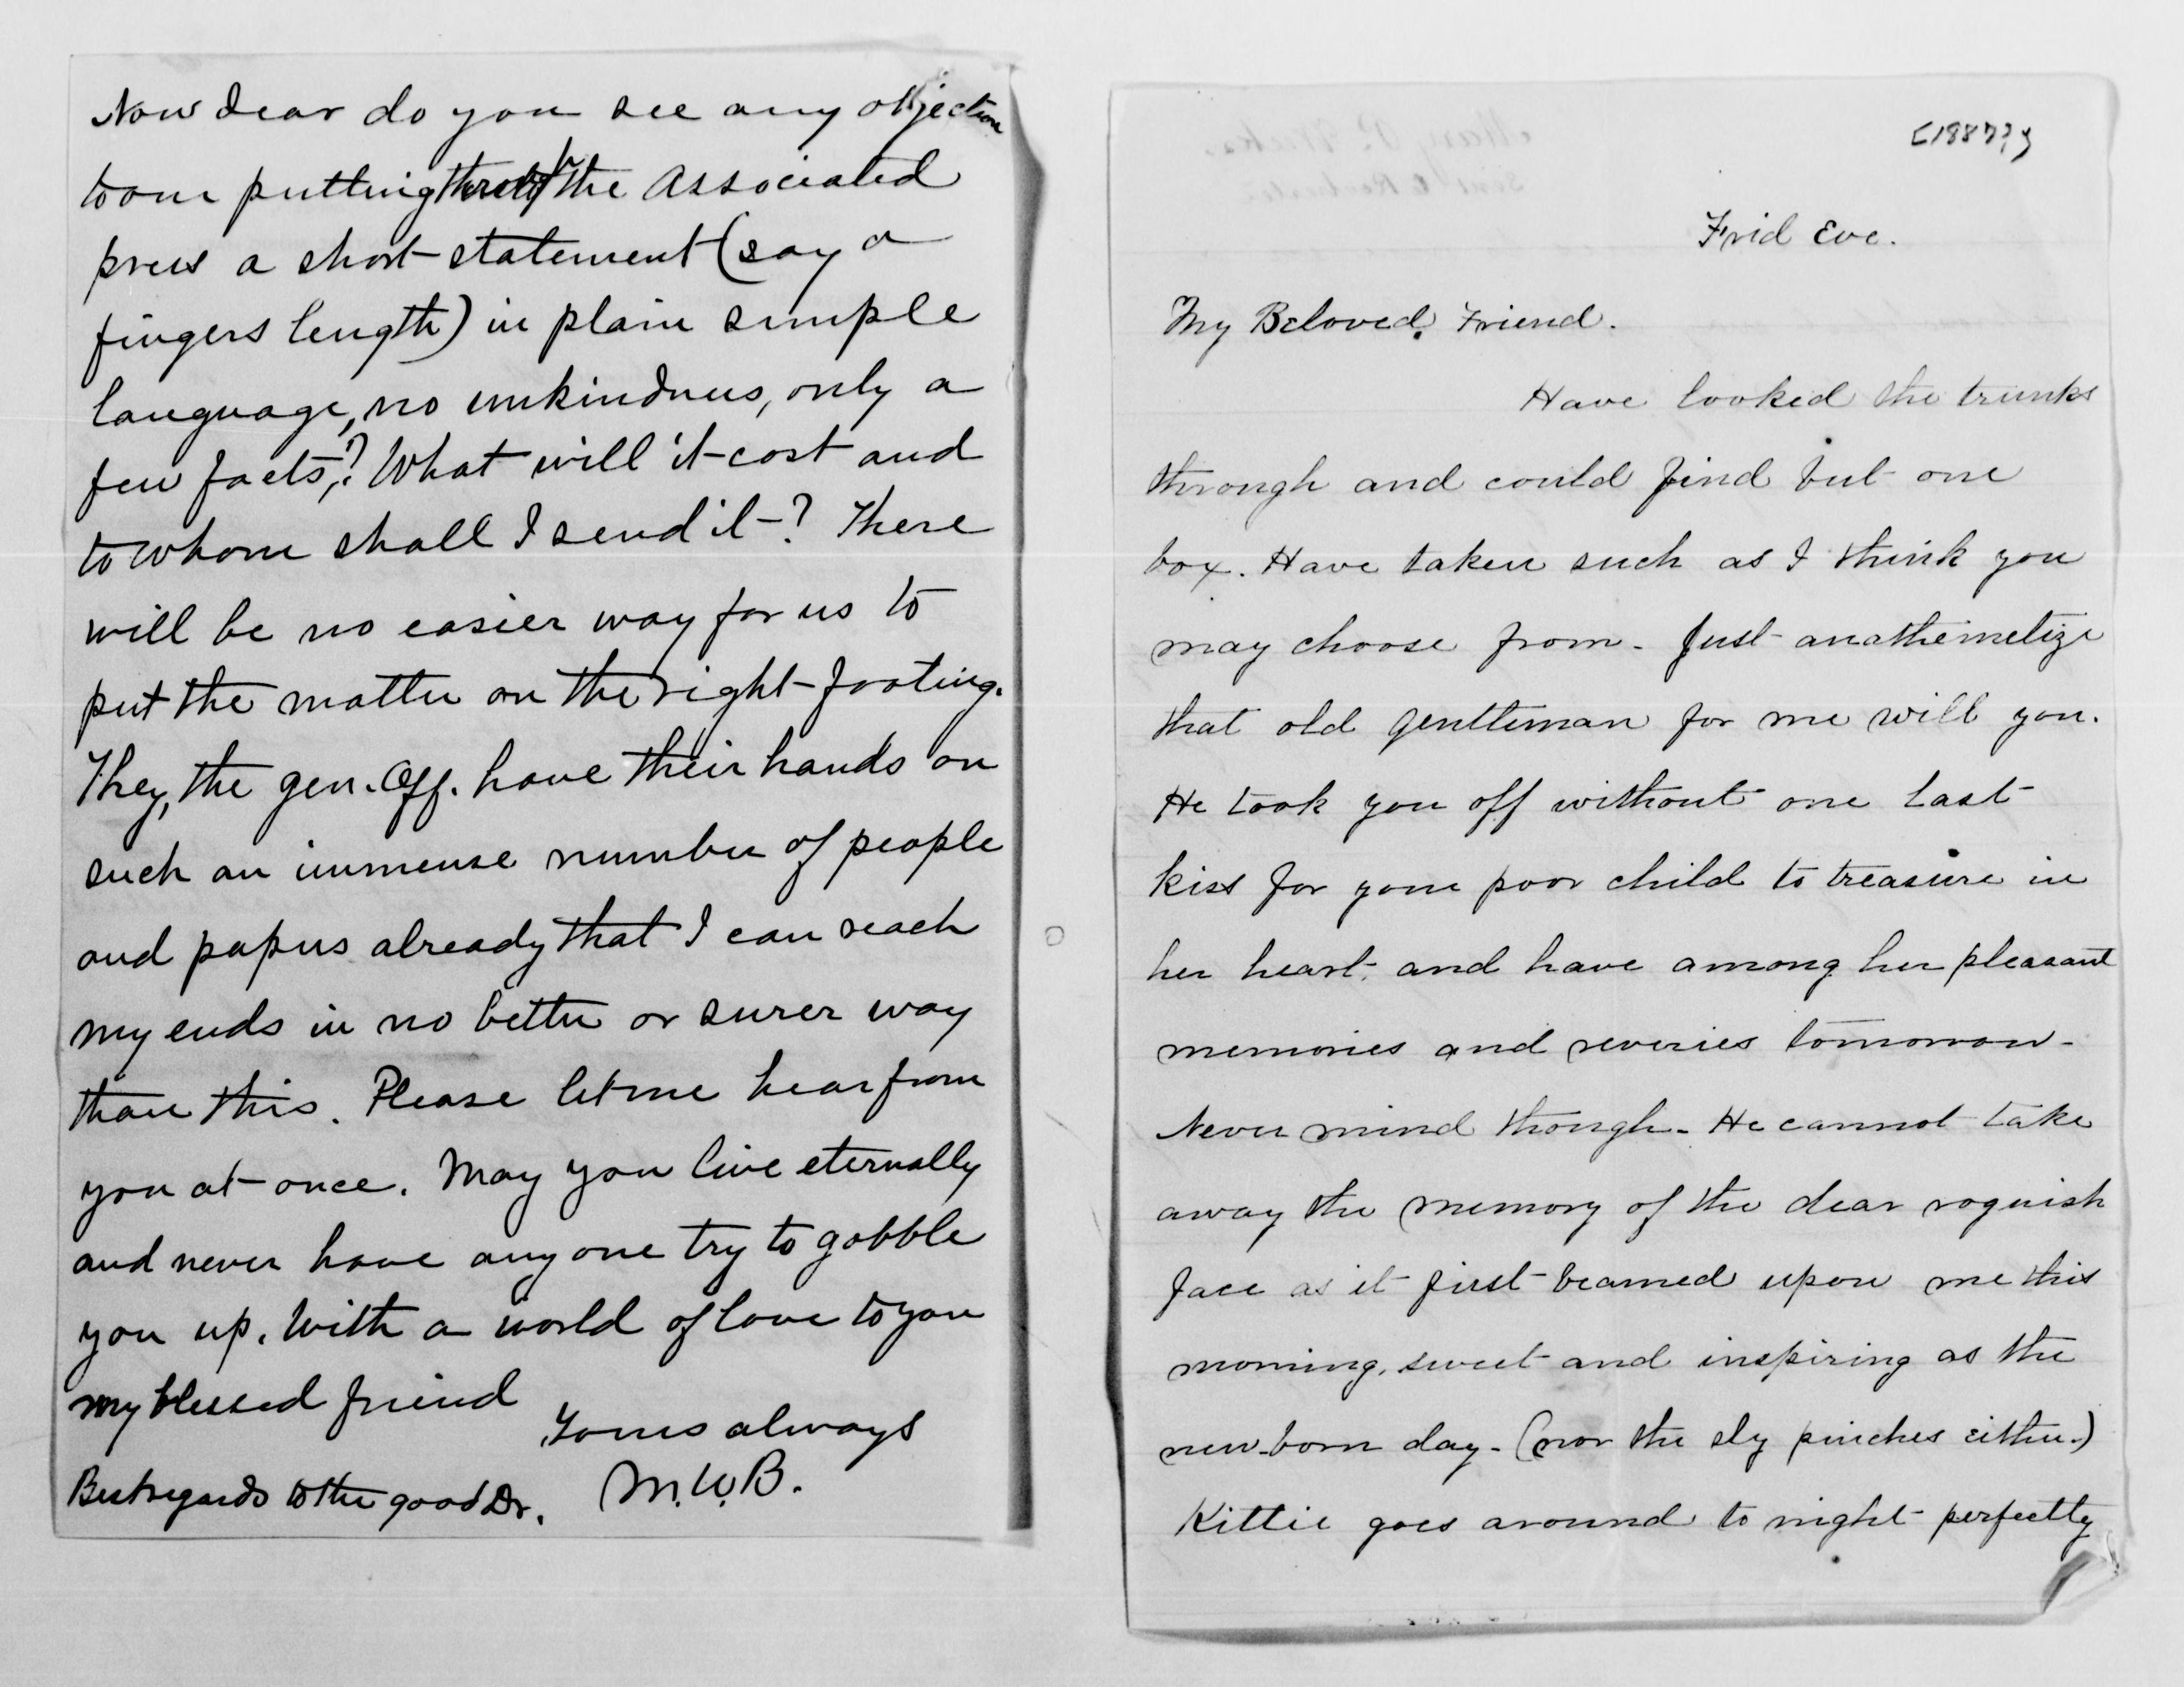 Now dear do you see any objection
to our putting through the Associated
press a short statement (say a
fingers length) in plain simple
language, no unkindness, only a
few facts,? What will it cost and
to whom shall I send it-? There
will be no easier way for us to
put the matter on the right footing.
They, the gen. Off. have their hands on
such an immense number of people
and papers already that I can reach
my ends in no better or surer way
than this. Please let me hear from
you at once. May you live eternally
and never have any one try to gobble
you up. With a world of love to you
my blessed friend
Yours always
Best regards to the good Dr. M.W.B.
[1887?]
Frid Eve.
My Beloved Friend.
Have looked the trunks
through and could find but one
box. Have taken such as I think you
may choose from - Just anathemetize
that old gentleman for me will you.
He took you off without one last
kiss for your poor child to treasure in
her heart, and have among her pleasant
memories and reveries tomorrow -
Never mind though - He cannot take
away the memory of the dear roguish
face as it first beamed upon me this
morning, sweet and inspiring as the
new-born day - (nor the sly pinches either.)
Kittie goes around to night perfectly